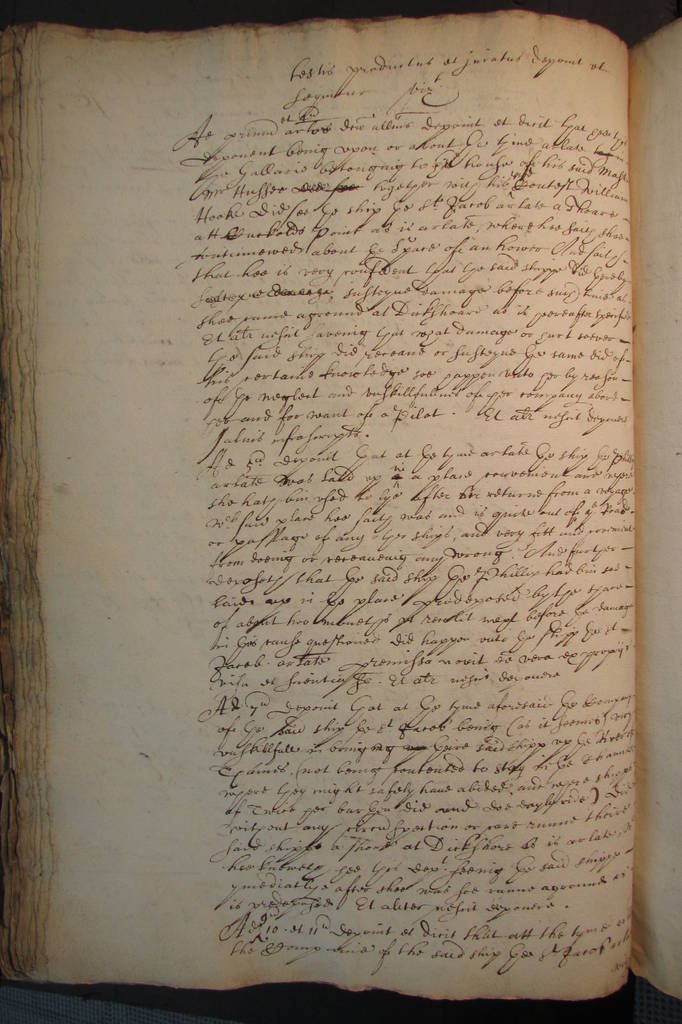 testis productus et juratus deponit et
sequitur vizt
et 2um
Ad primum artos deponit et dicit that
deponent being upon or about the tyme arlate in
the Gallarie belonging to the house of his said Master
Mr Hussee together with his William
Hooke did see the ship the St Jacob arlate a shoare
att Cuckolds point as is arlate, where hee saith shee
continuewed about the space of an hower And saith
that hee is very confident that the said shipp did
susteyne damage before such time as
shee came aground at Dickshoare as is hereafter specified
Et alr nescit saveing that what damage or hurt soever
the said ship did receave or susteyne the same did of
his certaine knowledge soe happen unto her by reason
of the neglect and unskillfulnes of her company aboard
her and for want of a Pilot. Et alr nescit deponere
salvis infrascriptis.
Ad deponit that at the tyme arlate the ship the Phillip
arlate was laid up in a place convenient and where
she hath bin used to lye after her returne from a voyage
wch said place hee saith was and is quite out of the road
or passage of any other ships, and very fitt and convenient
from doeing or receaveing any wrong. And further
deposeth that the said ship the Phillip had bin soe
laid up in the place predeposed by the space
of about two moneths next before the damage
in this cause questioned did happen unto the shipp the St
Jacob arlate premissa novit esse vera ex proprijs
visu et scientia &c. Et alr nescit deponere
Ad 7um deponit that at the tyme aforesaid the Company
of the said ship the St Jacob being (as it seemes) very
unskillfull in bringing up their said shipp up the River
Thames. (not being contented to stay in the Channell
where they might safely have abided, and where shipps
of twice her burthen did and doe dayly ride) did
without any circumspection or care runne their
said shippe a shoare at Dickshore as is arlate,
hee knoweth hee this dept seeing the said shippe
ymediatlye after shee was soe runne aground as
is predeposed Et aliter nescit deponere.
Ad 9um 10. et 11um deponit et dicit that att the tyme
the Companie of the said ship the St Jacob